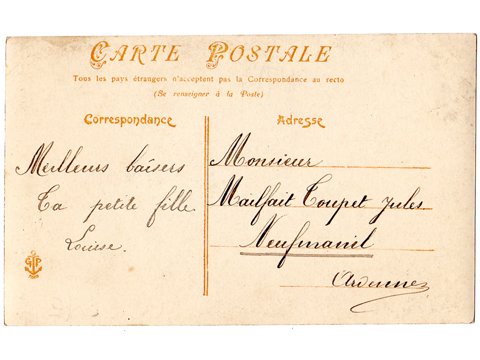 CARTE POSTALE
Tous les pays étrangers n'acceptent pas la Correspondance au recto
(Se renseigner à la Poste)
Correspondance
Adresse
Meilleurs baisers
Ta petite fille
Louise.
Monsieur
Mailfait Toupet Jules
Neufmanil
Ardennes